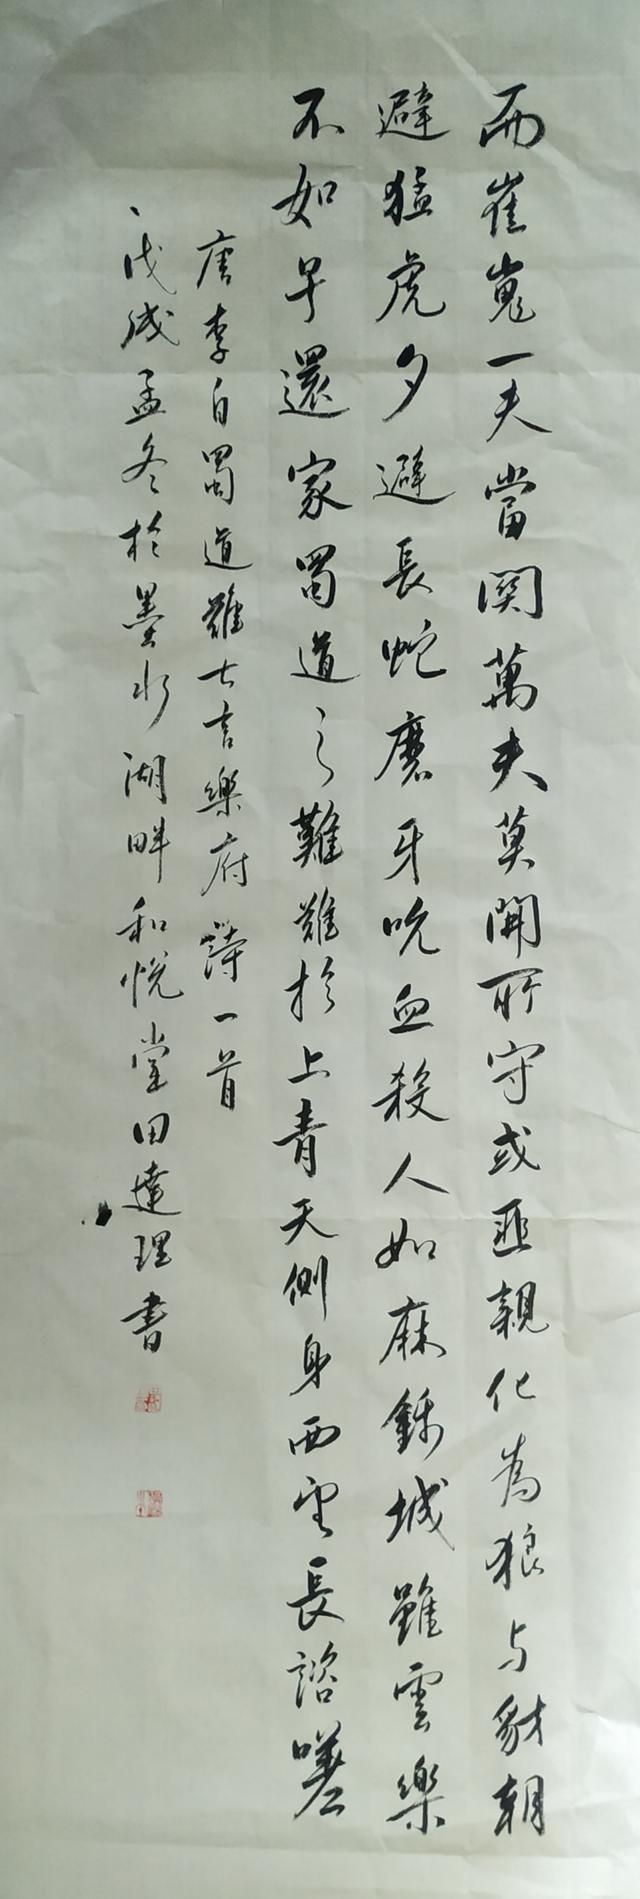 而崔嵬一夫當関萬夫莫開所守或匪親化為狼与豺朝
避猛虎夕避長蛇磨牙吮血殺人如麻錦城雖雲樂
不如早還家蜀道之難難於上青天側身西望長諮嗟
唐李白蜀道難七言樂府詩一首
戊戌孟冬於墨水湖畔和悅堂田達理書